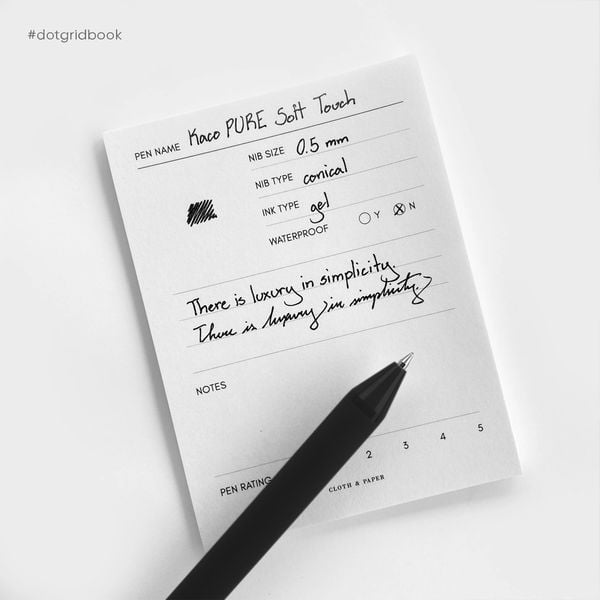 #dotgridbook
PEN NAME Kaco PURE Soft Touch
NIB SIZE 0.5 mm
NIB TYPE conical
INK TYPE gel
WATERPROOF Y N
There is luxury in simplicity.
There is luxury in simplicity.
NOTES
PEN RATING 2 3 4 5
CLOTH & PAPER